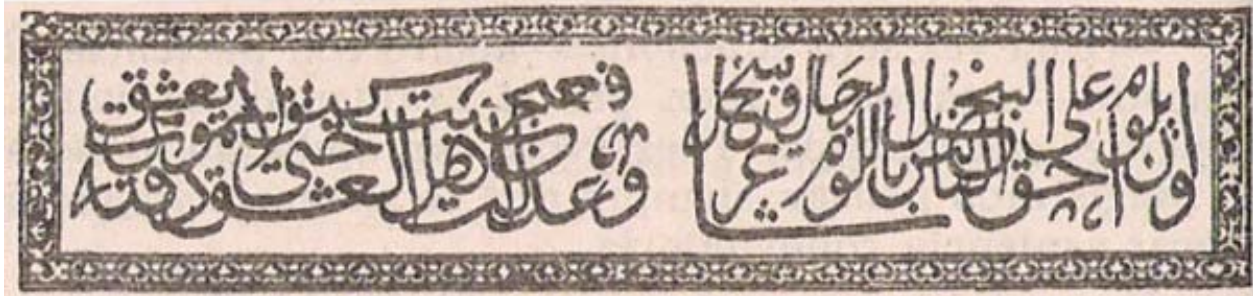 وان احق الناس باللوم شاعر يلوم على البخل الرجال ويبخل
وعذلت اهل العشق حتى ذقته فعجبت كيف يموت من لا يعشق